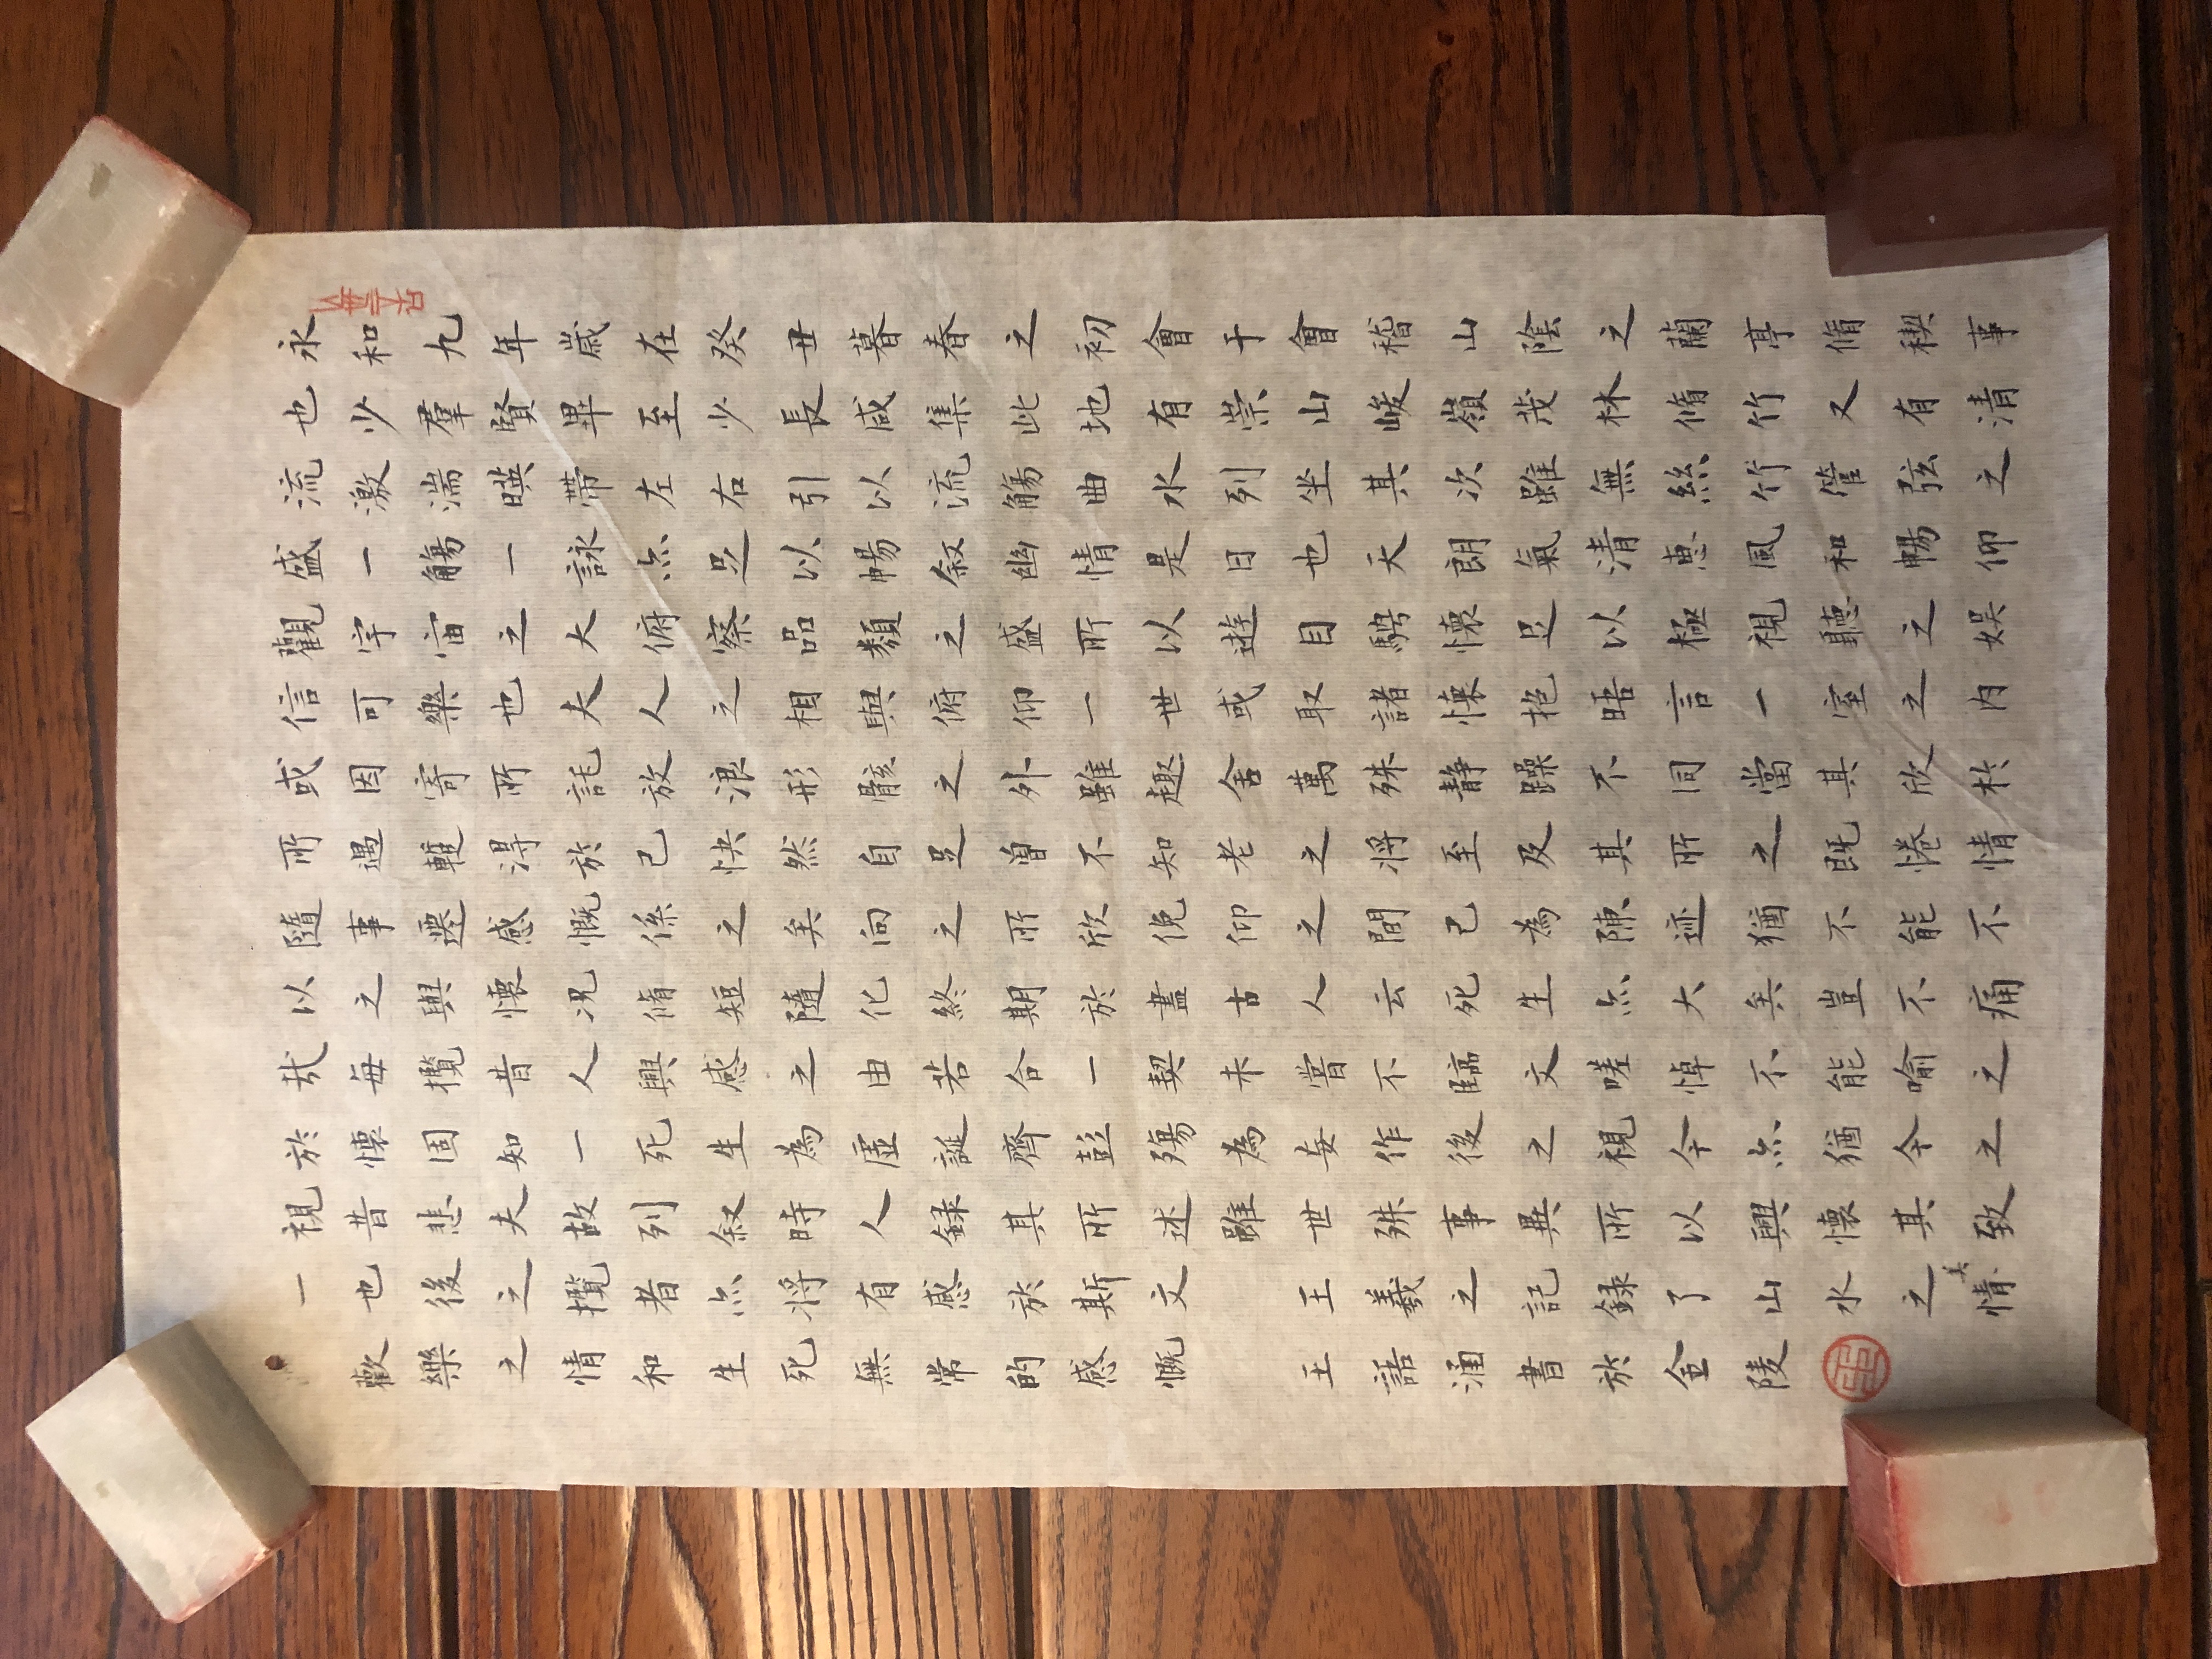 永和九年歲在癸丑暮春之初會于會稽山陰之蘭亭脩禊事
也少羣賢畢至少長咸集此地有崇山峻嶺茂林脩竹又有清
流激湍暎帶左右引以流觴曲水列坐其次雖無絲竹管弦之
盛一觴一詠亦足以暢叙幽情是日也天朗氣清惠風和暢仰
觀宇宙之大俯察品類之盛所以遊目騁懷足以極視聽之娛
信可樂也夫人之相與俯仰一世或取諸懷抱晤言一室之內
或因寄所託放浪形骸之外雖趣舍萬殊静躁不同當其欣於
所遇暫得於己快然自足曾不知老之将至及其所之既惓情
隨事遷感慨係之矣向之所欣俛仰之間已為陳迹猶不能不
以之興懷况脩短隨化終期於盡古人云死生亦大矣豈不痛
哉每攬昔人興感之由若合一契未嘗不臨文嗟悼不能喻之
於懷固知一死生為虛誕齊彭殤為妄作後之視今亦猶今之
視昔悲夫故列叙時人録其所述雖世殊事異所以興懷其致
一也後之攬者亦将有感於斯文 王羲之記録了山水之情美
歡樂之情和生死無常的感慨 王語涌書於金陵